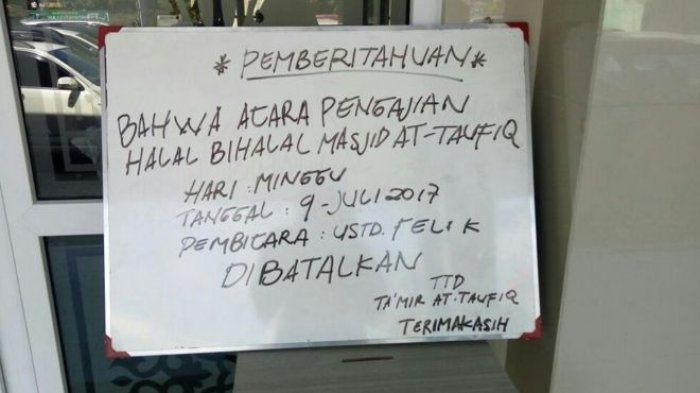 * PEMBERITAHUAN *
BAHWA ACARA PENGAJIAN
HALAL BIHALAL MASJID AT-TAUFIQ
HARI : MINGGU
TANGGAL : 9 - JULI 2017
PEMBICARA : USTD. FELIK
DIBATALKAN
TTD
TA'MIR AT-TAUFIQ
TERIMAKASIH